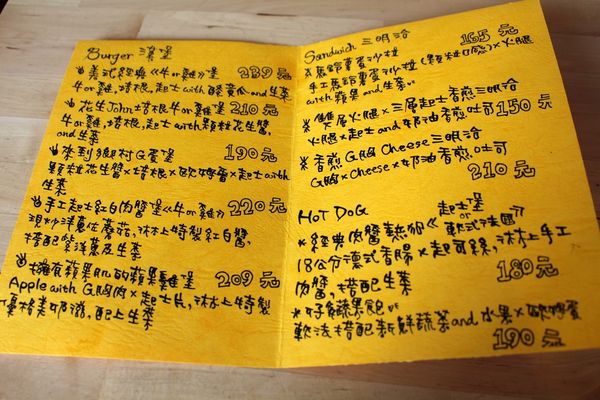 Burger 漢堡
美式經典《牛or雞》堡 239元
牛or雞,培根,起士with酸黃瓜and生菜
花生John培根牛or雞堡 210元
牛or雞,培根,起士with顆粒花生醬,
and生菜
來到鄉村G蛋堡 190元
顆粒花生醬×培根×歐姆蛋×起士with
生菜
手工起士紅白肉醬堡《牛or雞》 220元
現炒洋蔥佐蘑菇,淋上特製紅白醬,
搭配紫洋蔥及生菜
擁有蘋果肌的蘋果雞堡 209元
Apple with G胸肉×起士片,淋上特製
優格美奶滋,配上生菜
Sandwich 三明治
馬鈴薯蛋沙拉 165元
手工馬鈴薯蛋沙拉(顆粒口感)×火腿
with蘋果and生菜。
雙層火腿×三層起士香煎三明治
火腿×起士and奶油香煎吐司 150元
香煎G胸Cheese三明治
G胸×Cheese×奶油香煎吐司
210元
HOT DOG 起士堡
or
經典肉醬熱狗《軟式法國》
18公分德式香腸×起司絲,淋上手工
肉醬,搭配生菜 180元
好食蔬果飽
軟法搭配新鮮蔬菜and水果×歐姆蛋
190元